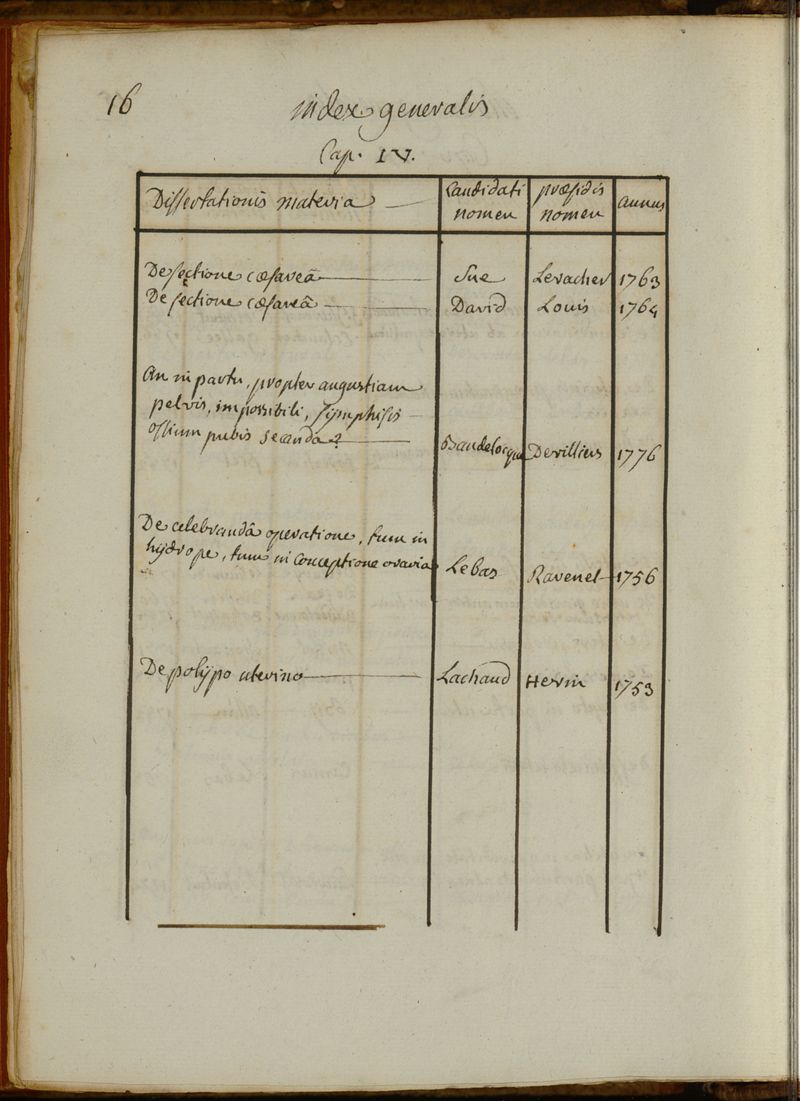 16
index generalis
Cap. IV.
Dissertationis materia
Candidati nomen
præsidis nomen
annus
De sectione cæsareâ Sue Levacher 1763
De sectione cæsareâ David Louis 1764
An in partu, propter angustiam
pelvis, impossibili, symphisis
ossium pubis secanda? Baudelocque Devilliers 1776
De celebrandâ operatione, tum in
hydrope, tum in conceptione ovaria Lebas Ravenet 1756
De polypo uterino Lachaud Hevin 1753